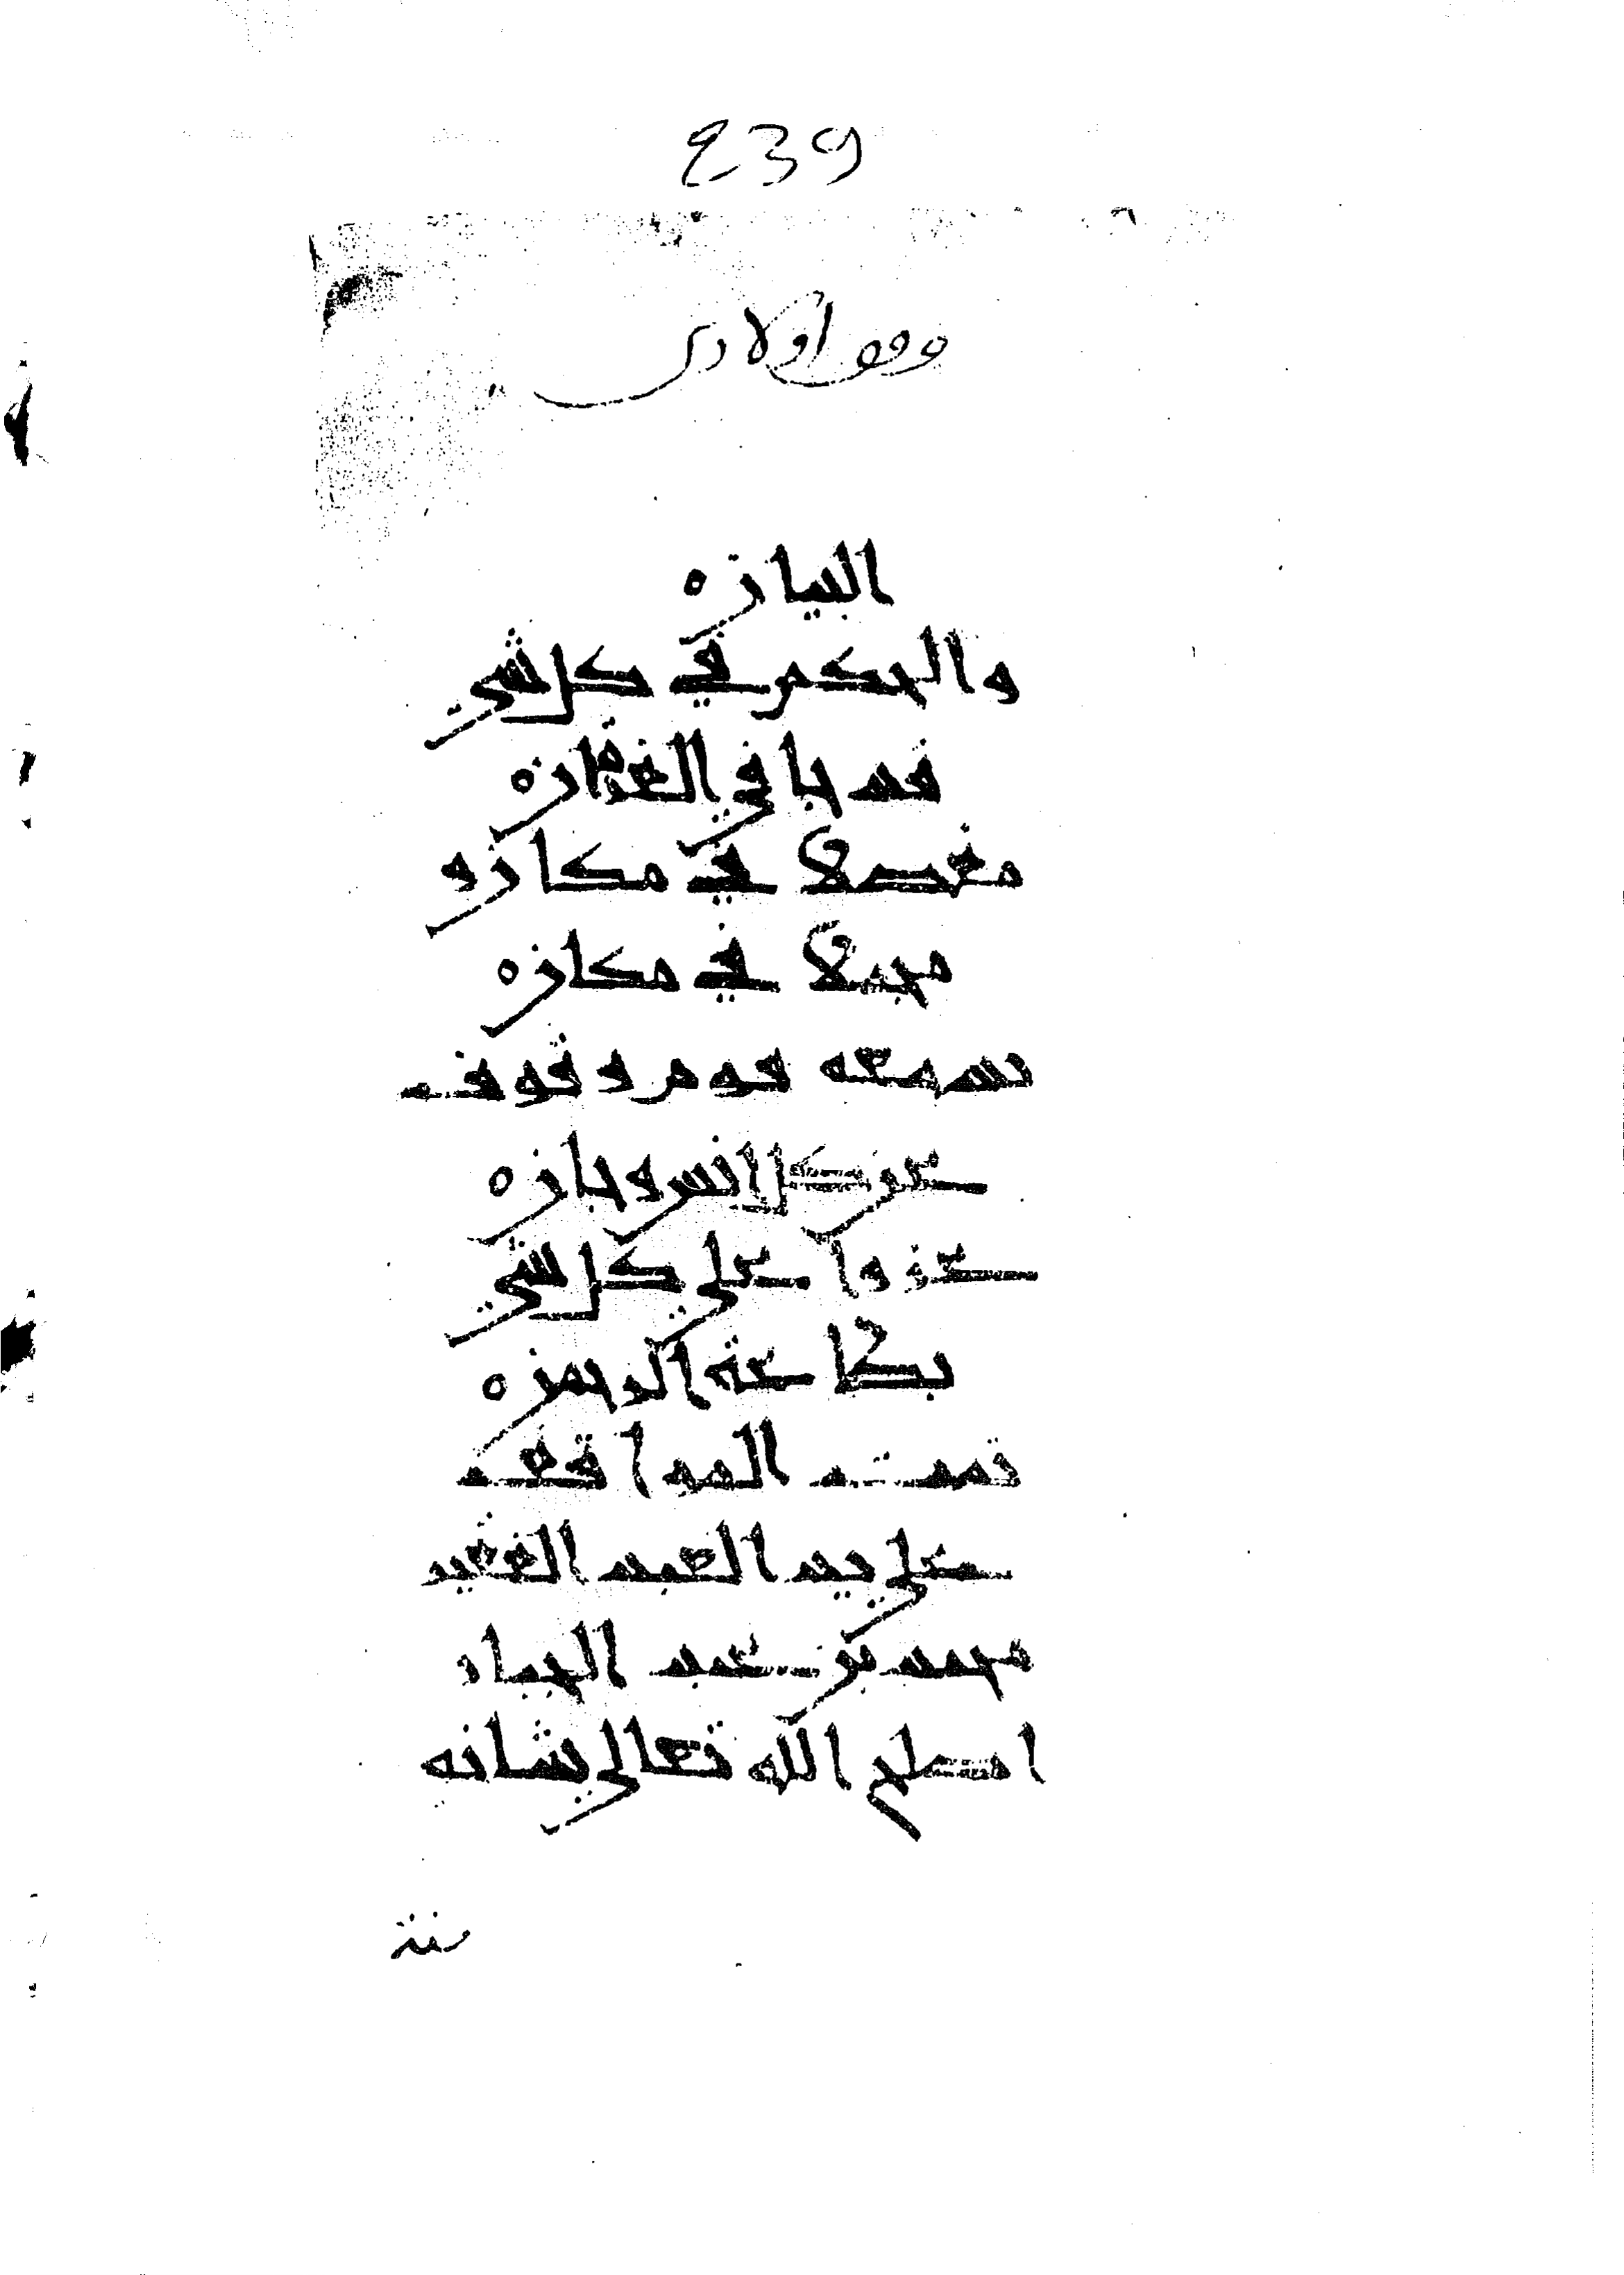 239
وقف اولادى
البيان ه
والحكم في كل شي
قد جا في القران ه
مفصلا في مكان و
مجملا في مكان ه
سمعه قوم وقوف
عن كل انس وجان ه
عنوا علي كل شي
بطاعة الرحمن ه
تمت المواقف
علي يد العبد الفقير
محمد بن عبد الجبار
اصلح الله تعالي شانه